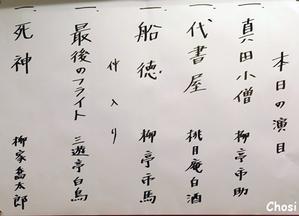 本日の演目
一、真田小僧 柳亭市助
一、代書屋 桃月庵白酒
一、船徳 柳亭市馬
仲入り
一、最後のフライト 三遊亭白鳥
一、死神 柳家喬太郎
Chosi